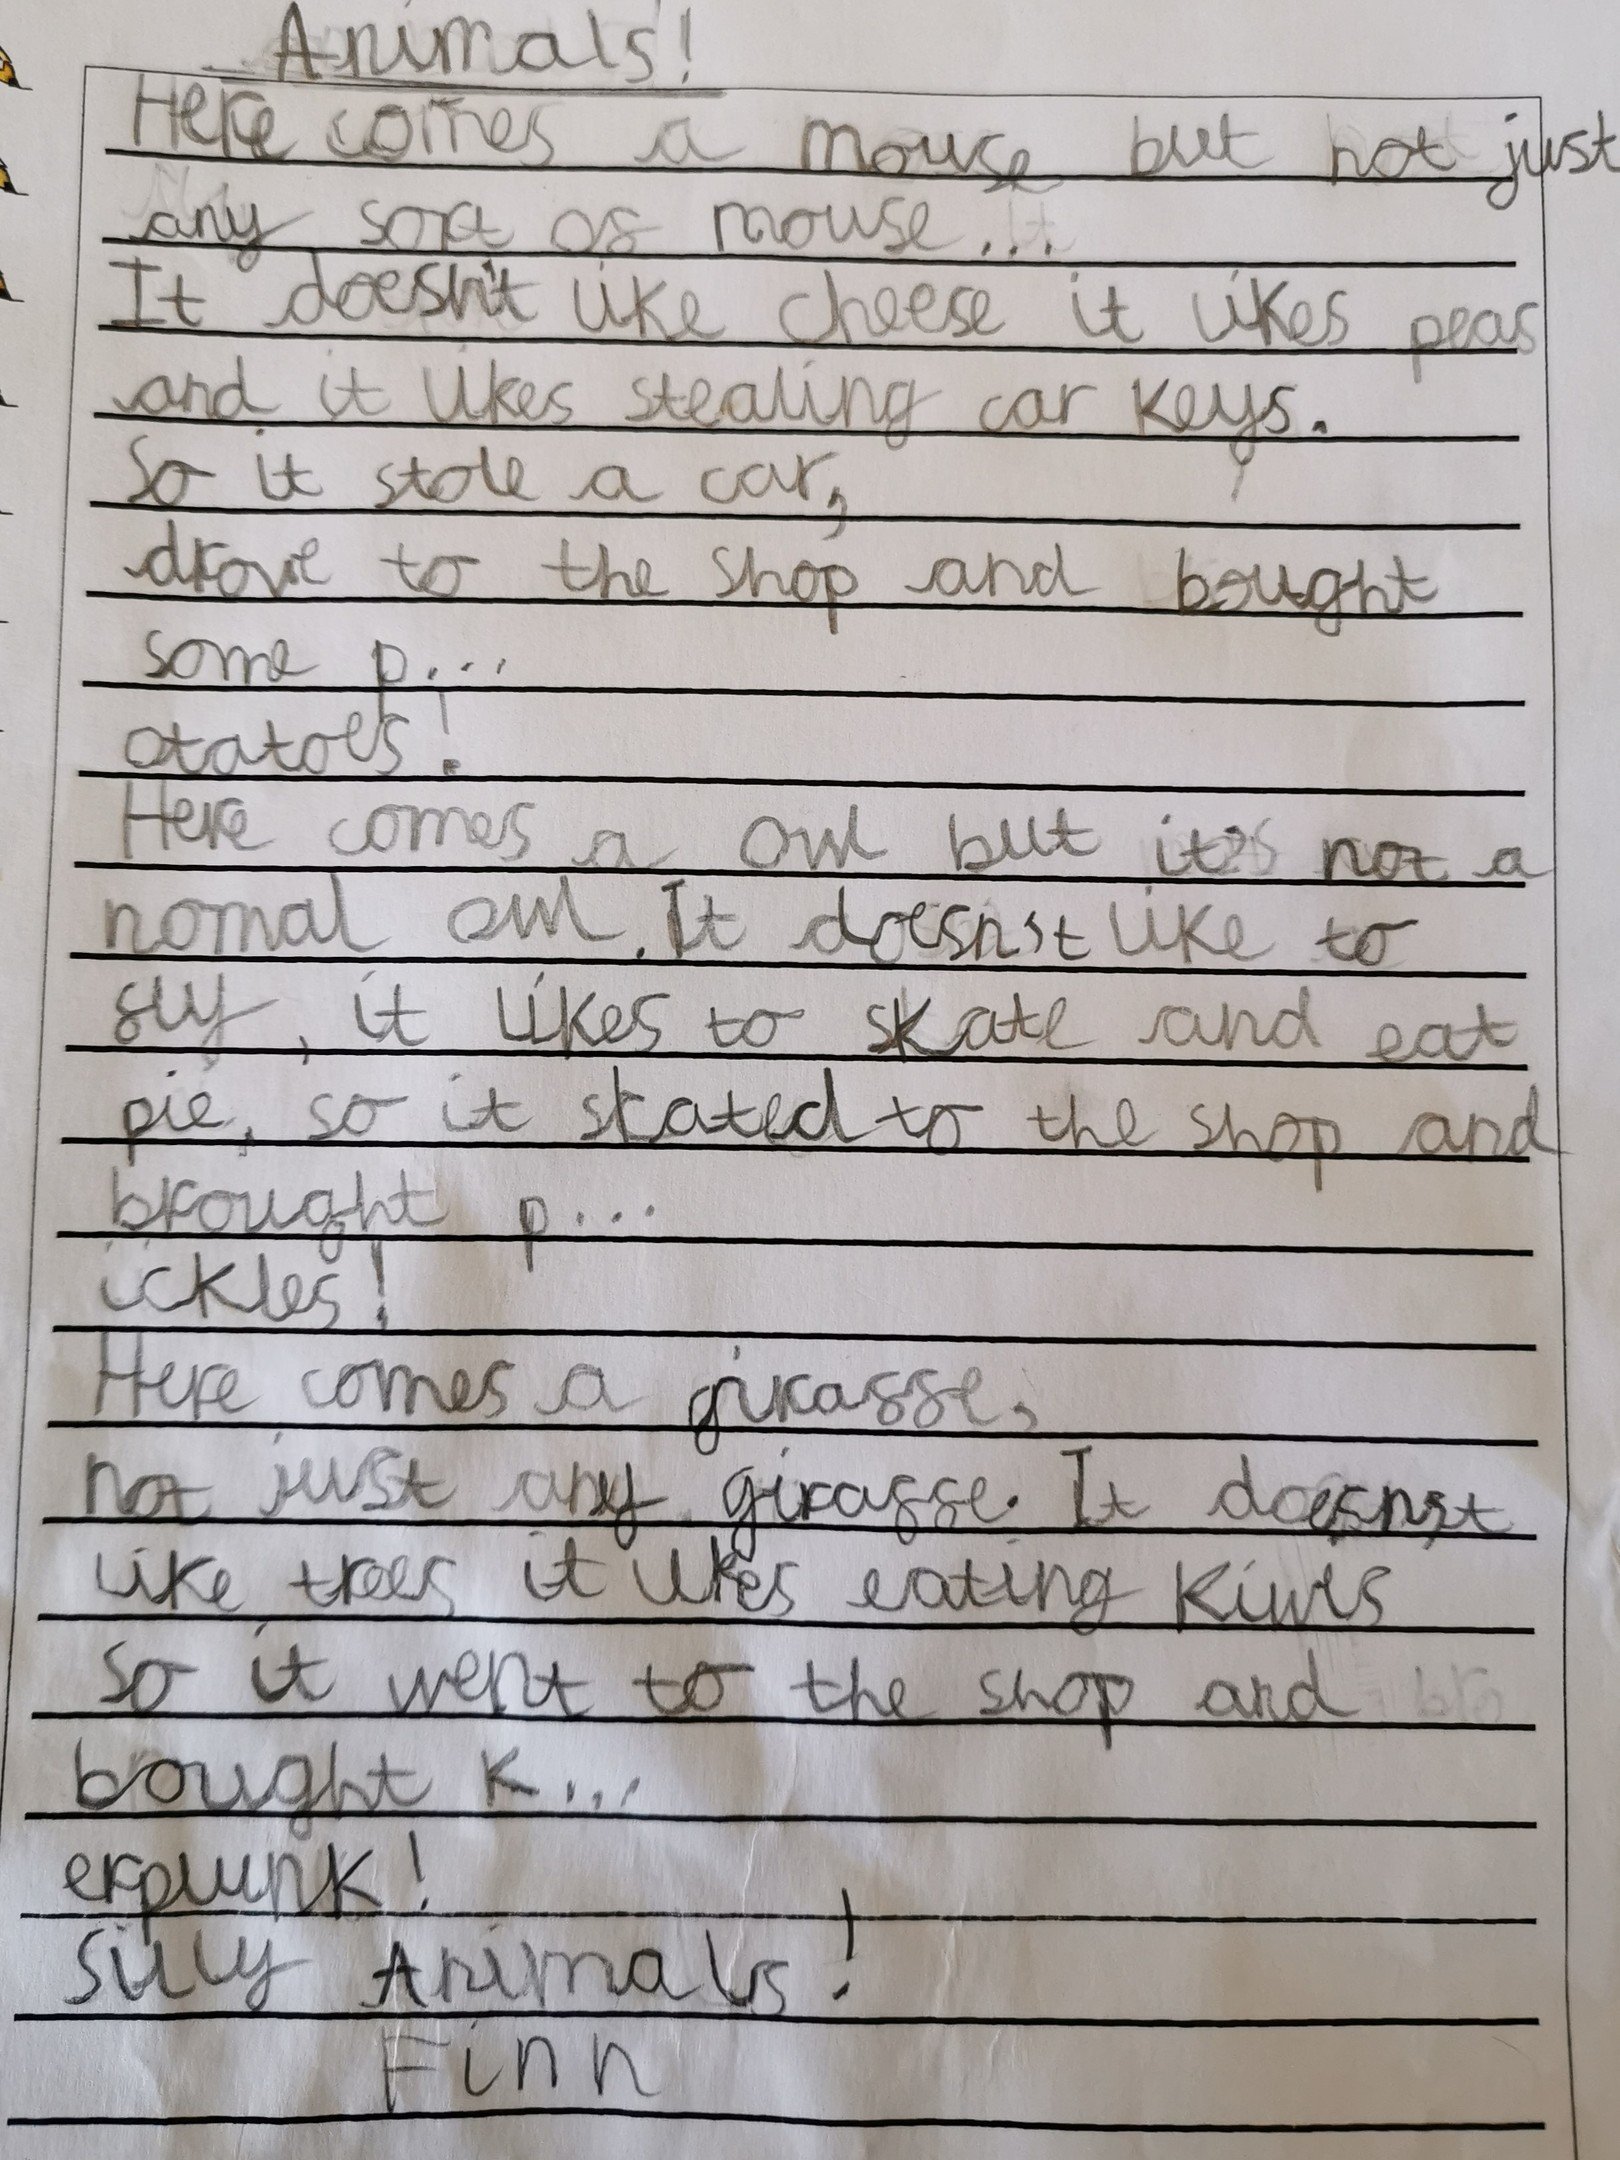 Animals!
Here comes a mouse but not just
any sort of mouse...
It doesn't like cheese it likes peas
and it likes stealing car keys.
So it stole a car,
drove to the shop and bought
some p...
otatoes!
Here comes a owl but it's not a
nomal owl. It doesn't like to
fly, it likes to skate and eat
pie, so it skated to the shop and
brought p...
ickles!
Here comes a giraffe,
not just any giraffe. It doesn't
like trees it likes eating kiwis
so it went to the shop and
bought k...
erplunk!
Silly Animals!
Finn